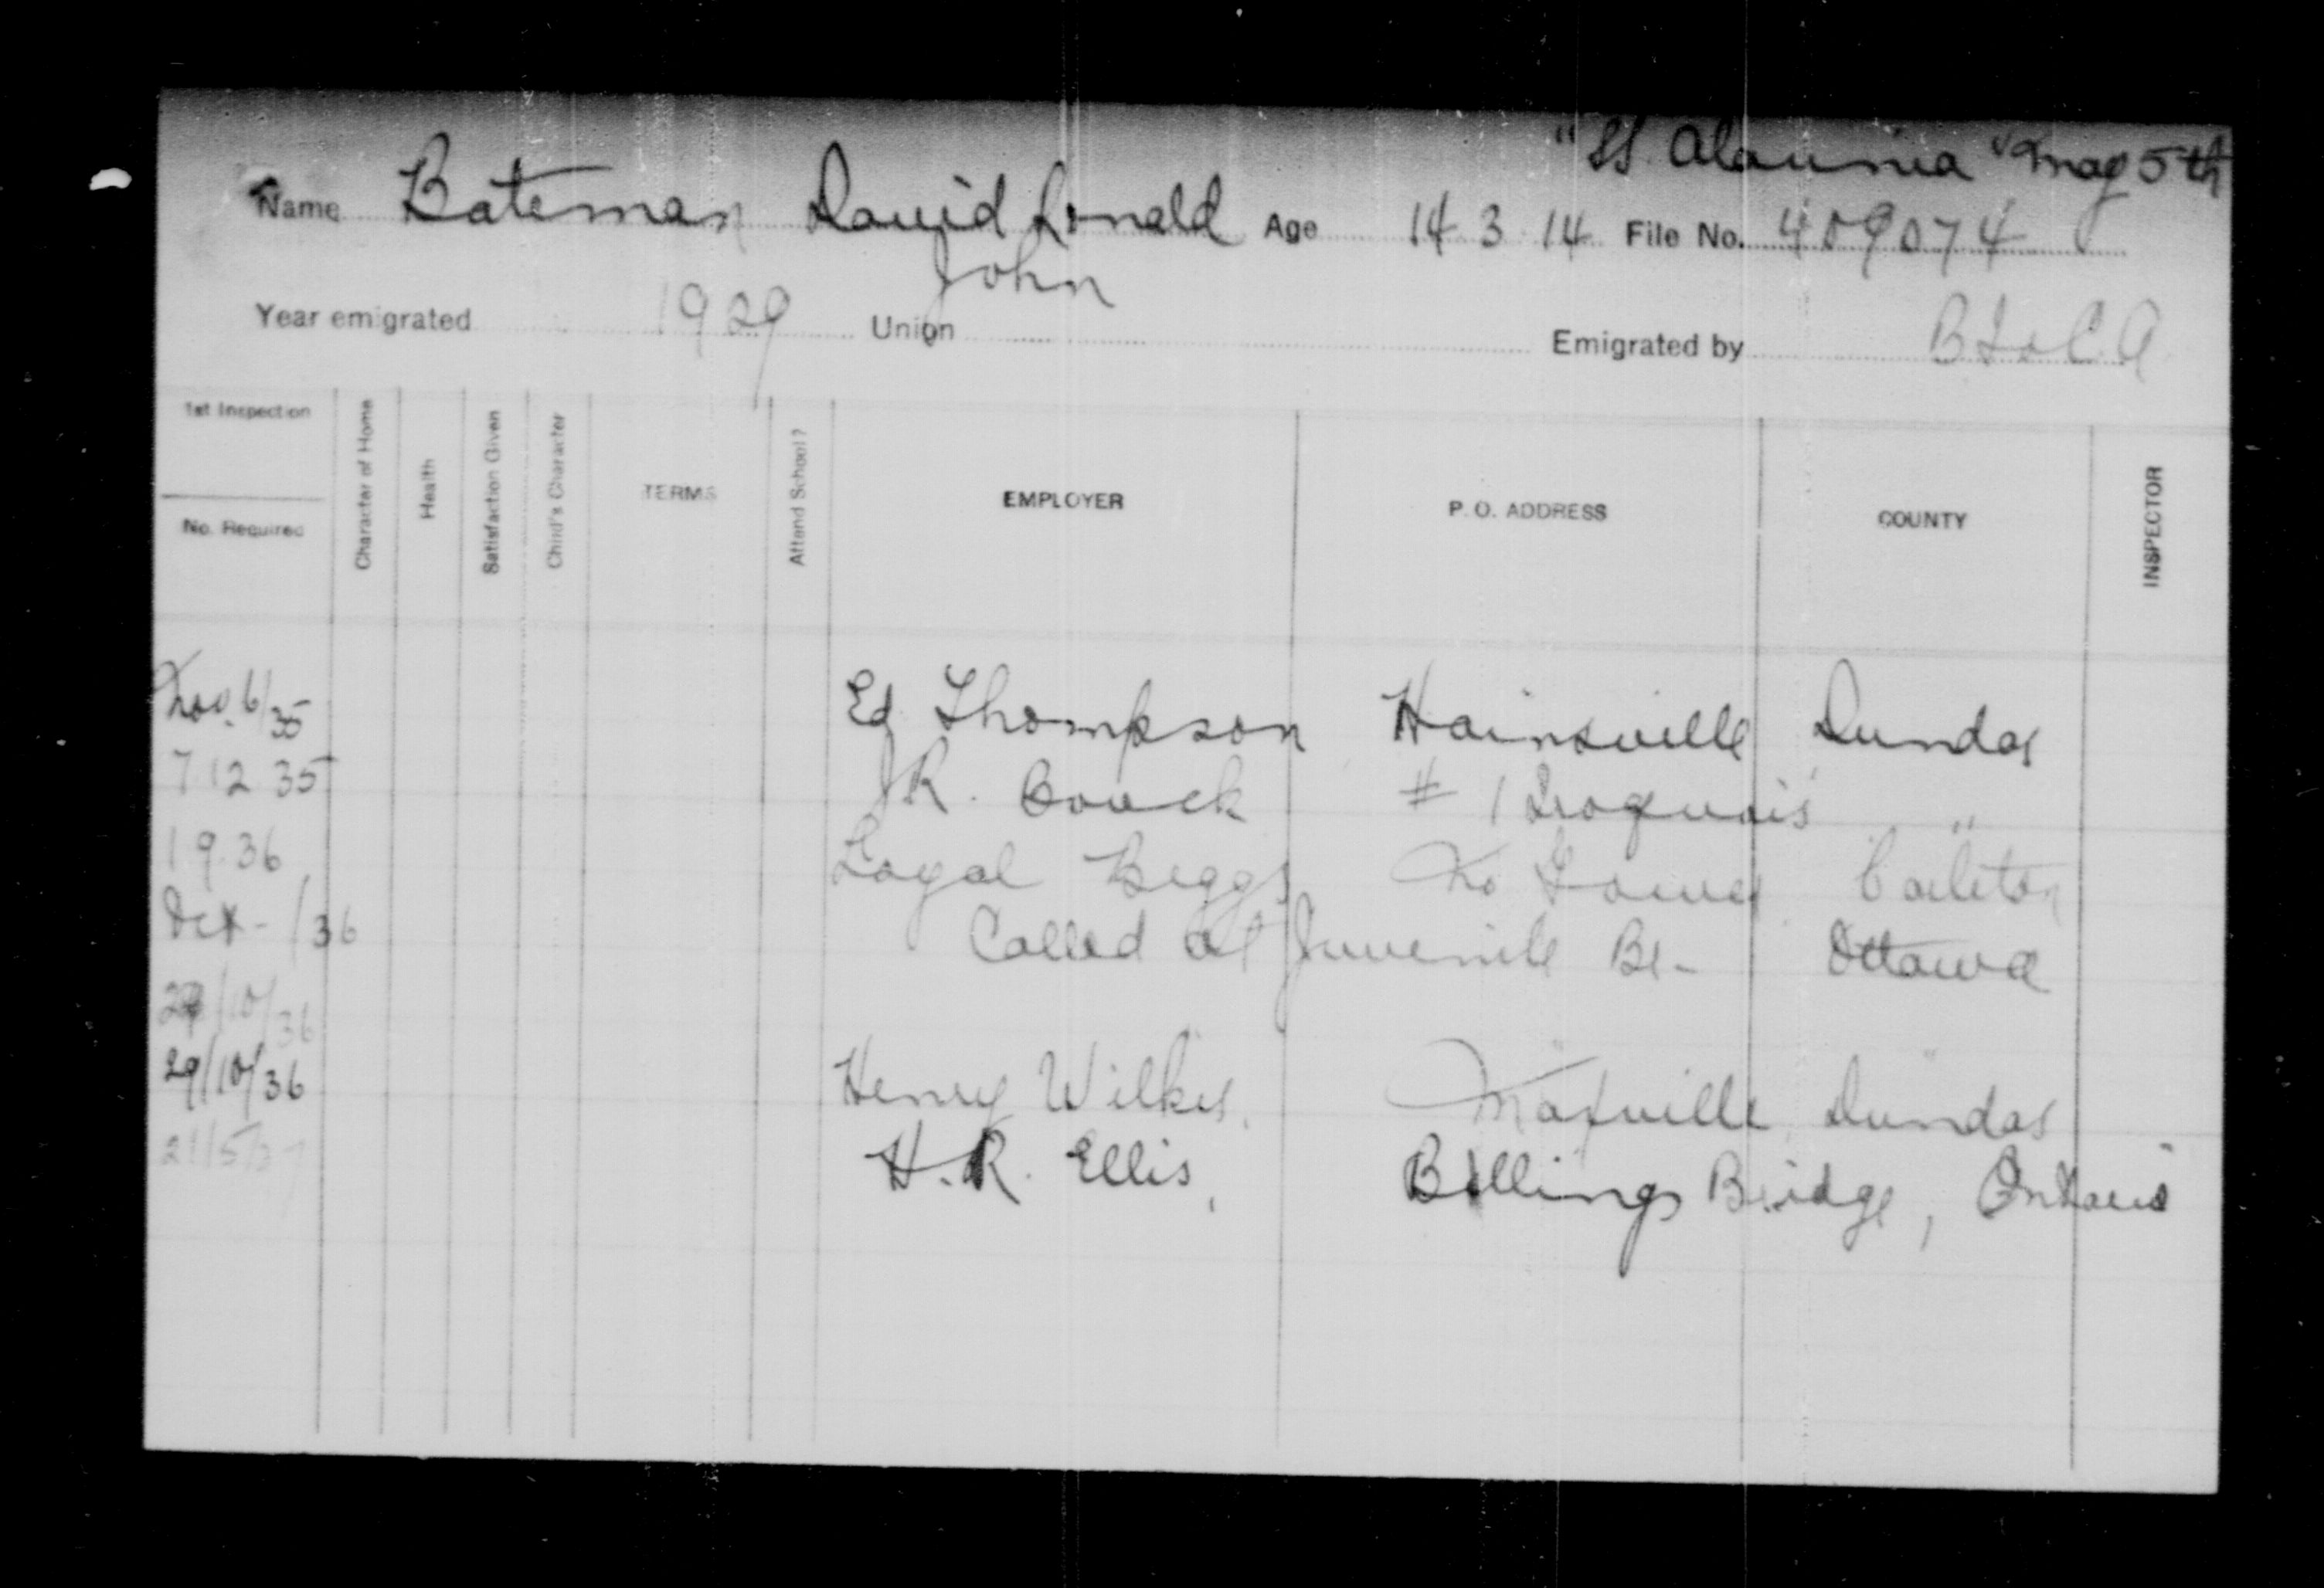 "SS Alaunia" May 5th
Name Bateman David Ronald Age 14 3 14 File No. 409074
John
Year emigrated 1929 Union Emigrated by
1st Inspection
No. Required
Character of Home
Health
Satisfaction Given
Child's Character
TERMS
Attend School?
EMPLOYER
P. O. ADDRESS
COUNTY
INSPECTOR
Nov. 6/35 Ed Thompson Hainsville Dundas
7 12 35 J R. Bouck # 1 Iroquois "
1 9 36 Loyal Beggs No Gower Carleton
Oct - /36 Called at Juvenile Br- Ottawa
/10/36
29/10/36 Henry Wilkes. Maxville Dundas
21/5/37 H. R. Ellis, Billings Bridge, Ontario